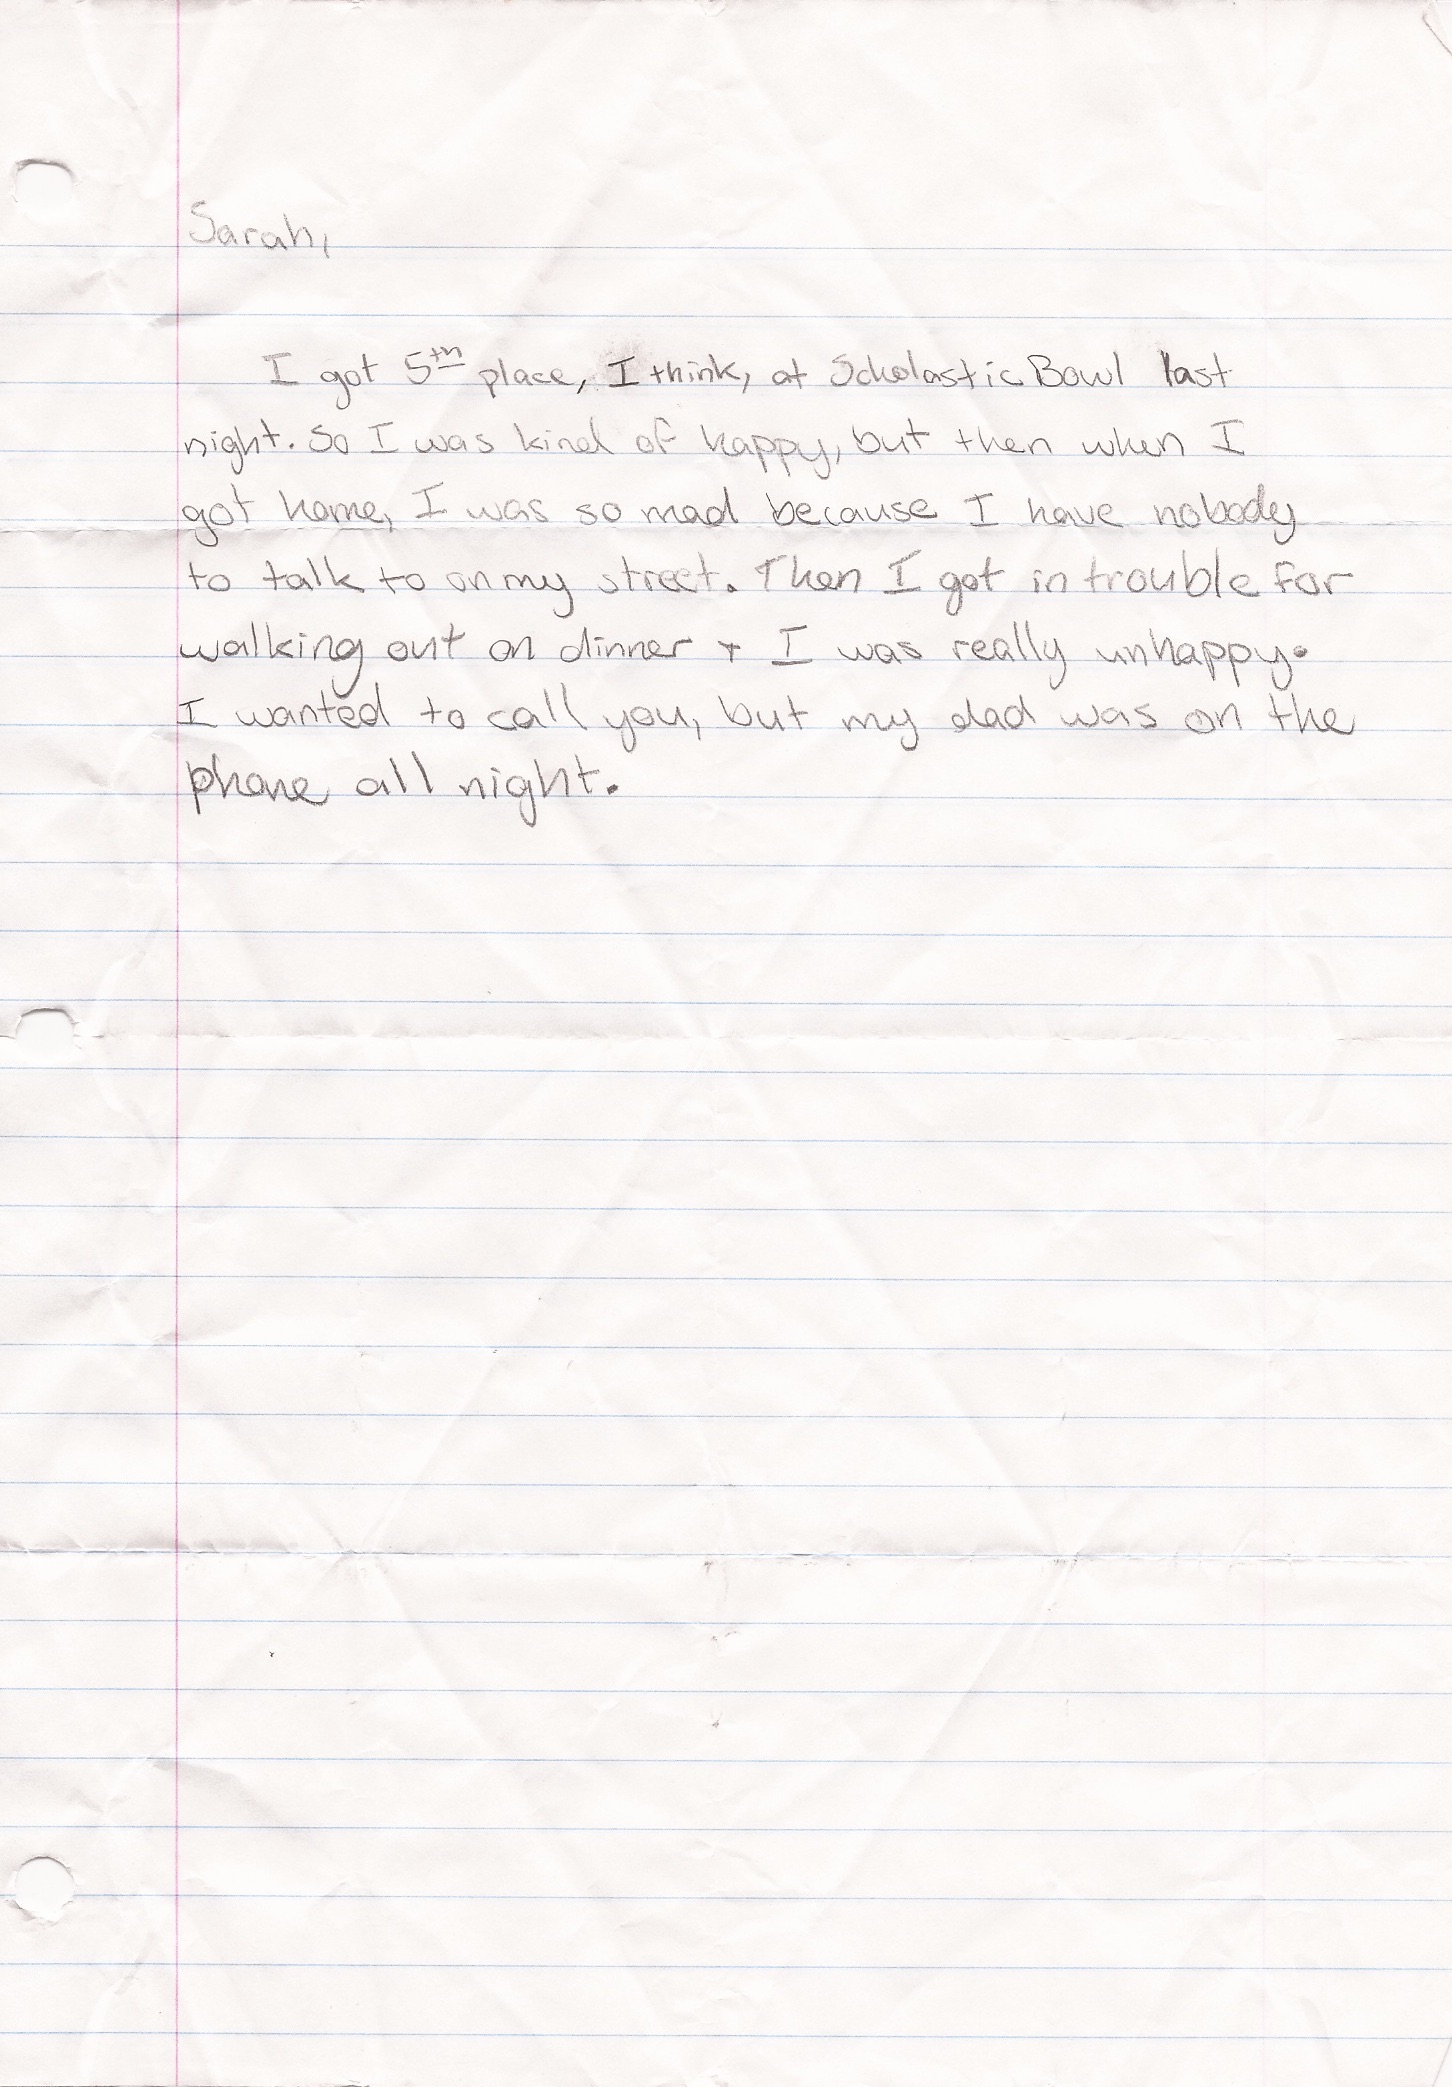 Sarah,
I got 5th place, I think, at Scholastic Bowl last
night. So I was kind of happy, but then when I
got home, I was so mad because I have nobody
to talk to on my street. Then I got in trouble for
walking out on dinner + I was really unhappy.
I wanted to call you, but my dad was on the
phone all night.